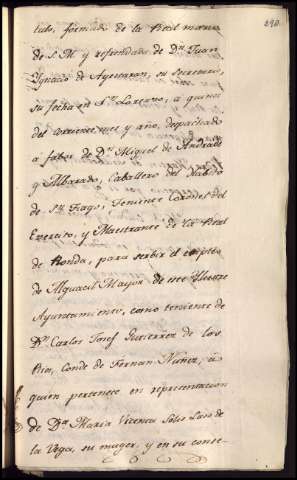 290.
tulo, firmado de la Real mano
de S. M. y refrendado de Dn. Juan
Ygnacio de Ayestaran, su secretario
su fecha en Sn. Lorenzo, a quince
del corriente mes y año, despachado
a fabor de Dn. Miguel de Andrade
y Albarado, Caballero del Habito
de San Tiago, Teniente Coronel del
Exercito, y Maestrante de la Real
de Ronda, para serbir el empleo
de Alguacil Mayor de este Ylustre
Ayuntamiento, como teniente de
Dn. Carlos Josef Gutierrez de los
Rios, Conde de Fernan Nuñez, a
quien pertenece en representacion
de Da. Maria Vicenta Solis Laso de
la Vega, su muger, y en su conse-